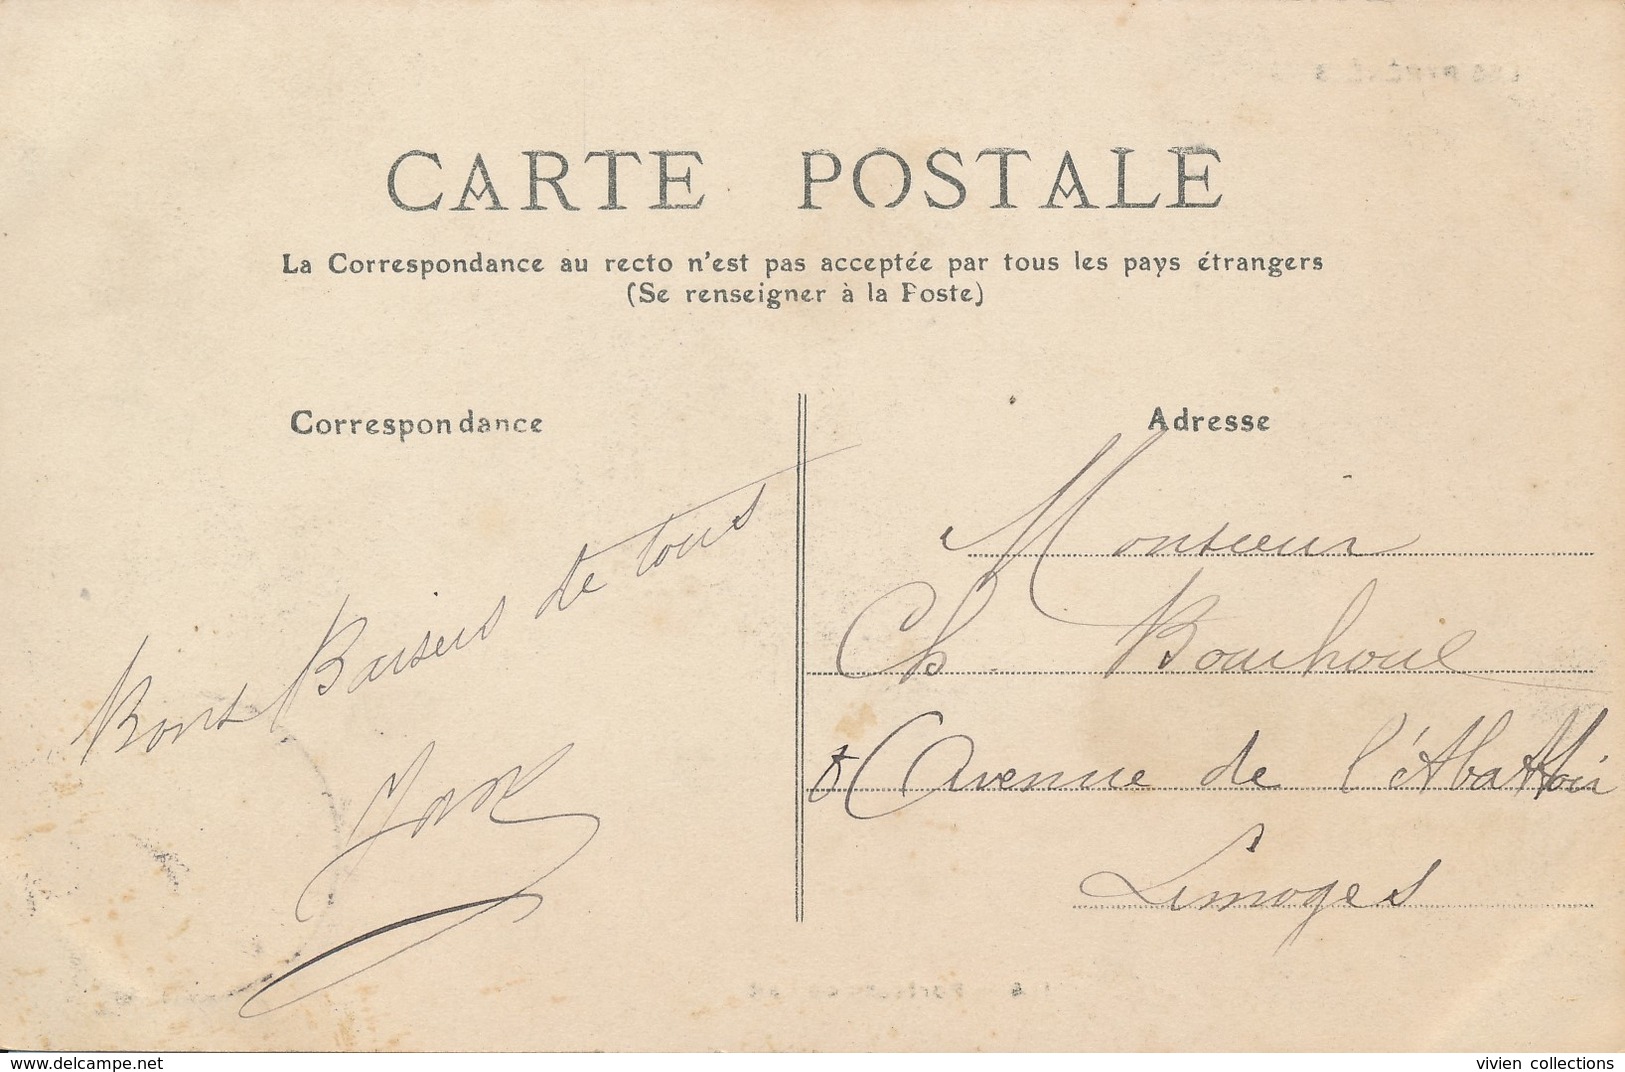 CARTE POSTALE
La Correspondance au recto n'est pas acceptée par tous les pays étrangers
(Se renseigner à la Poste)
Correspondance
Bons Baisers de tous
Adresse
Monsieur
Ch
Avenue de l'Abattoir
Limoges
delcampe.net
vivien collections